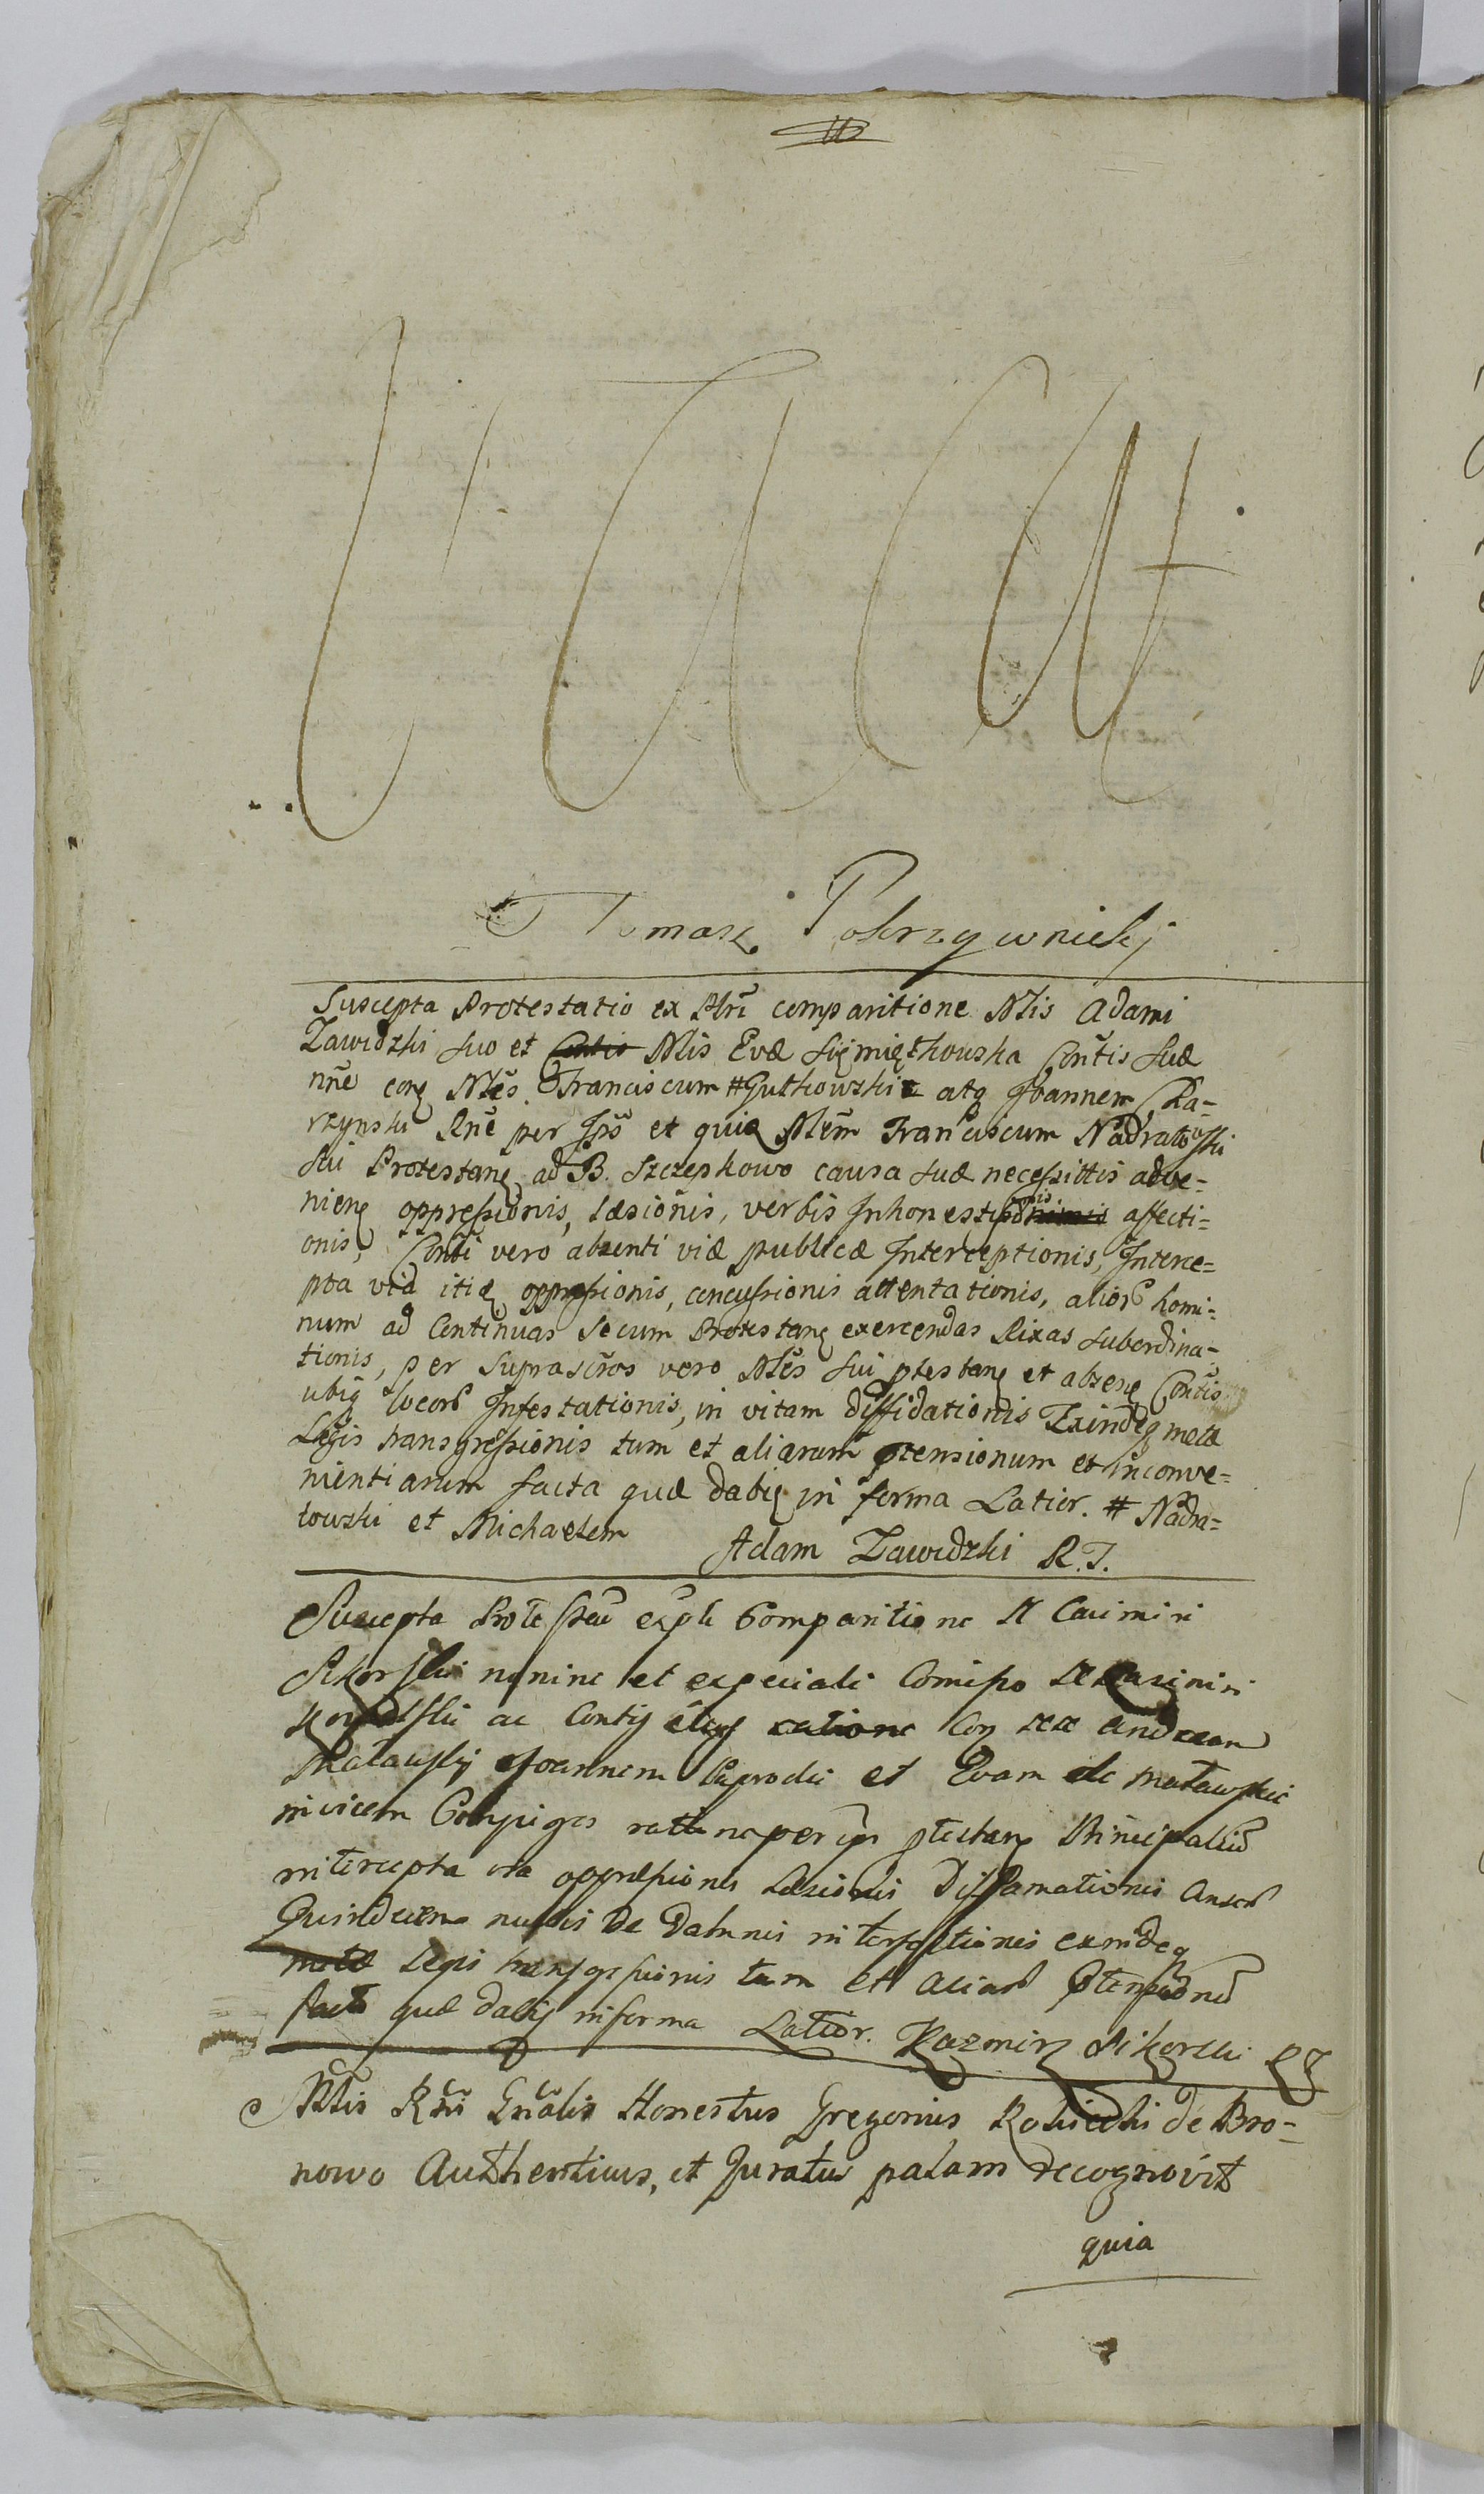 Vacat
Tomasz Pokrzywnickj
Suscepta Protestatio ex Plri comparitione Nlis Adami
Zawidzki suo et Contis Nlis Evæ Siemiętkowska Contis suæ
nne conq Nles Franciscum # Gutkowski atq Joannem Cka-
rzynski Rne per Ipso et quia Nlem Franciscum Nadratowski
sui Protestanq ad B. Szczepkowo causa suæ necessittis adve-
nienq oppressionis, læsionis, verbis Inhonestis affecti-
onis, Conti vero absenti viæ publicæ Interceptionis, Interce-
pta via itiq oppressionis, concussionis attentationis, alior homi-
num ad Continuas secum Protestanq exercendas Rixas subordina-
tionis, per suprascros vero Nles sui ptestanq et absenq Contis
ubiq locor Infestationis, in vitam diffidationis Exindeq metæ
Legis transgressionis tum et aliarum ptensionum et inconve-
nientiarum facta quæ dabiq in forma Latior. # Nadra-
towski et Michaelem
Adam Zawidzki R.T.
Suscepta Prote exple Comparitione N Casimiri
Sikorski nonine et expeciali Comisso Casimiri
ac Contis ratione Con Andream
Joannem et Evam de
invicem Conjuges ptestanq Principaliu
intercepta via oppressionis Læsionis Diffamationis Anser
Quindecim de Dabunis interfectionis exindeq
metæ Legis transgressionis tum et aliar Ptensionu
facta quæ dabiq in forma Latior. Kazmirz Sikorski RT
Nlis Rni Gnalis Honestus Gregorius Rolucki de Bro-
nowo Authenticus, et Juratus palam recognovit
quia